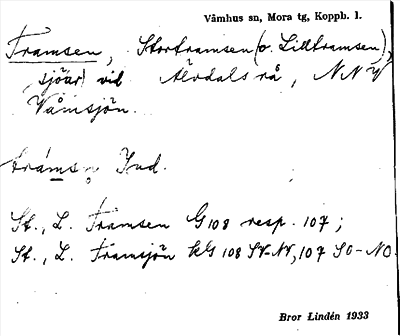 Våmhus sn, Mora tg, Koppb. l.
Tramsen, Stortramsen (o. Lilltramsen),
sjöar vid Älvdals rå, NNV
Våmsjön.
trámsn̥ Ind.
St., L. Tramsen G 108 resp. 107;
St., L. Tramsjön kG 108 SV-NV, 107 SO-NO.
Bror Lindén 1933